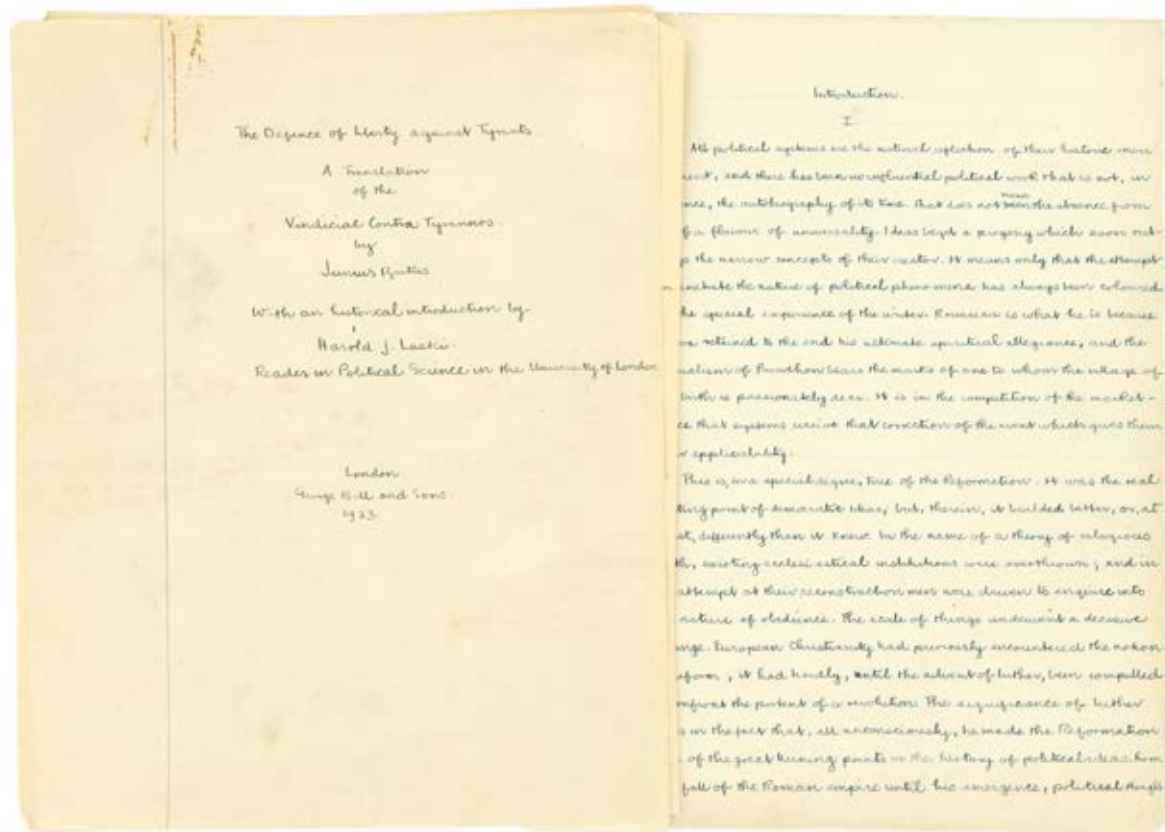 The Defence of Liberty against Tyrants
A Translation
of the
Vindiciae Contra Tyrannos
by
Junius Brutus
With an historical introduction by
Harold J. Laski.
Reader in Political Science in the University of London
London
George Bell and Sons
1923
Introduction.
I
All political systems are the natural reflection of their historic
and there has been no influential political work that is not, in
the autobiography of its time. That does not mean the absence from
of a flavour of universality. Ideas beget a progeny which soon
the narrow concepts of their creator. It means only that the attempt
the nature of political phenomena has always been coloured
the special experience of the writer. Rousseau is what he is because
retained to the end his ultimate spiritual allegiance, and the
of Proudhon bears the marks of one to whom the village of
birth is passionately dear. It is in the competition of the market-
that systems receive that correction of the event which gives them
applicability.
This is, in a special degree, true of the Reformation. It was the real
point of democratic ideas; but, therein, it builded better, or, at
differently than it knew. In the name of a theory of religious
existing ecclesiastical institutions were overthrown; and in
attempt at their reconstruction men were driven to enquire into
nature of obedience. The scale of things underwent a decisive
European Christianity had previously encountered the notion
it had hardly, until the advent of Luther, been compelled
the portent of a revolution. The significance of Luther
in the fact that, all unconsciously, he made the Reformation
of the great turning points in the history of political ideas. From
fall of the Roman empire until his emergence, political thought